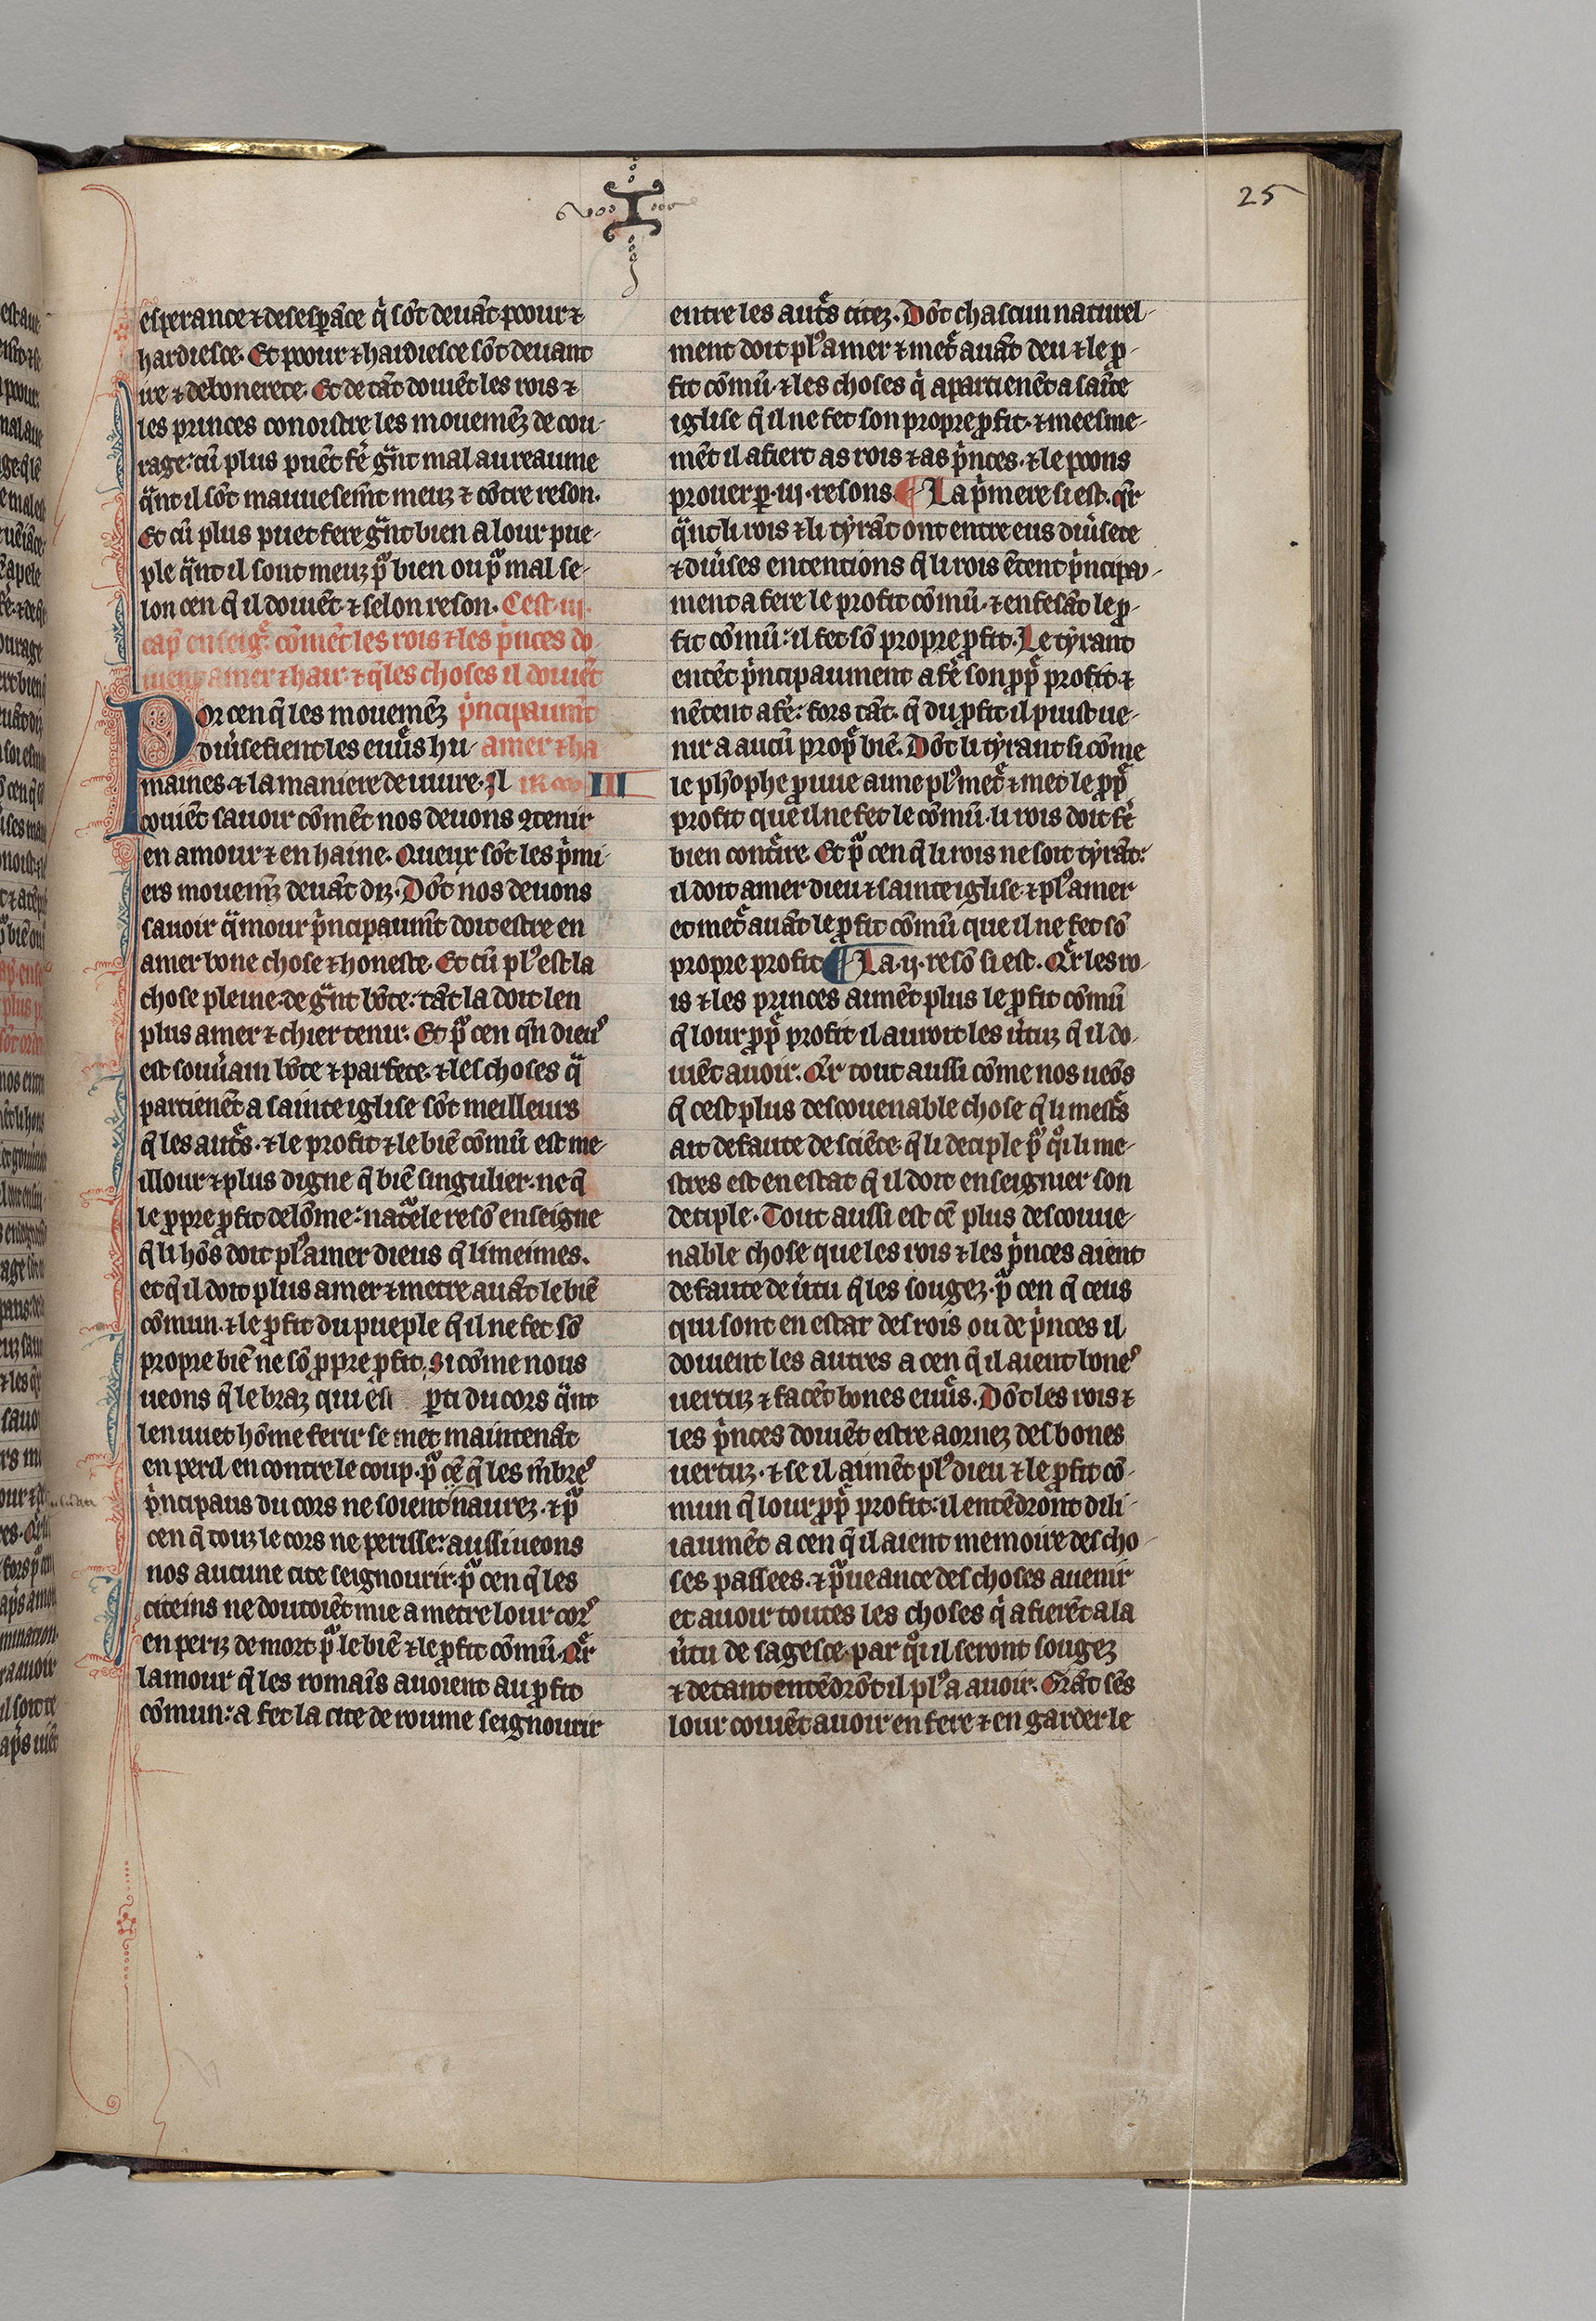 I
25
esperance ⁊ desesꝑãce q̉ sõt deuãt poour ⁊
hardiesce. Et poour ⁊ hardiesce sõt deuant
ire ⁊ debonerete. Et de tãt doiuẽt les rois ⁊
les princes conoistre les mouemẽz de cou-
rage: cũ plus puẽt fẻ gͣnt mal au reaume
qͣnt il sõt mauuesemẽt meuz ⁊ cõtre reson.
Et cũ plus puet fere gͣnt bien a lour pue-
ple qͣnt il sont meuz pͬ bien ou pͬ mal se-
lon cen q̃ il doiuẽt ⁊ selon reson. Cest .iij.
cap̃ enseig̃. cõmẽt les rois ⁊ les p̉nces do-
iuent amer ⁊ hair: ⁊ q̃les choses il doiuẽt
Por cen q̃ les mouemẽz p̉ncipaumẽt
diủsefient les euures hu- amer ⁊ ha
maines. ⁊ la maniere de uiure. Il ir III
couiẽt sauoir cõmẽt nos deuons ꝯtenir
en amour ⁊ en haine. Queux sõt les p̉mi-
ers mouemẽz deuãt diz. Dõt nos deuons
sauoir qͣmour p̉ncipaumẽt doit estre en
amer bone chose ⁊ honeste. Et cũ plꝰ est la
chose pleine de gͣnt bõte: tãt la doit len
plus amer ⁊ chier tenir. Et pͬ cen q̃n dieuˢ
est souủain bõte ⁊ parfete. ⁊ les choses qͣ
partienẽt a sainte iglise sõt meilleurs
q̃ les autͤs. ⁊ le profit ⁊ le biẽ cõmũ est me-
illour ⁊ plus digne q̃ biẽ singulier. ne q̃
le ꝓpre ꝓfit de lõme: natͤle resõ enseigne
q̃ li hõs doit plꝰ amer dieus q̃ li meimes.
et q̃ il doit plus amer ⁊ metre auãt le biẽ
cõmun. ⁊ le ꝓfit du pueple q̃ il ne fet sõ
propre biẽ ne sõ ꝓpre ꝓfit. Si cõme nous
ueons q̃ le braz qui est ꝑti du cors qͣnt
len uuet hõme ferir se met maintenãt
en peril en contre le coup. pͬ cẽ q̃ les mẽbreˢ
p̉ncipaus du cors ne soient naurez. ⁊ pͬ
cen q̃ touz le cors ne perisse: aussi ueons
nos aucune cite seignourir. pͬ cen q̃ les
citeins ne doutoiẽt mie a metre lour corˢ
en periz de mort pͬ le biẽ ⁊ le ꝓfit cõmũ. Qͬr
lamour q̃ les romaĩs auoient au ꝓfit
cõmun: a fet la cite de roume seignourir
entre les autͤs citez. Dõt chascun naturel-
ment doit plꝰ amer ⁊ metͤ auãt deu ⁊ le ꝓ-
fit cõmũ. ⁊ les choses q̉ apartienẽt a saĩte
iglise q̃ il ne fet son propre ꝓfit. ⁊ meesme-
mẽt il afiert as rois ⁊ as p̉nces. ⁊ le poons
prouer ꝑ .iij. resons. ¶ La p̉mere si est. qͬr
qͣnt li rois ⁊ li tẏrãt ont entre eus diủsete
⁊ diủses entencions q̃ li rois ẽtent p̉ncipa-
ment a fere le profit cõmũ. ⁊ en fesãt le ꝓ-
fit cõmũ: il fet sõ propre ꝓfit. Le tẏrant
entẽt p̉ncipaument a fẻ son ꝓpͤ profit. ⁊
nẽtent a fẻ: fors tãt. q̃ du ꝓfit il puist ue-
nir a aucũ propͤ biẽ. Dõt li tẏrant si cõme
le phõphe ꝓuue aime plꝰ metͤ ⁊ met le ꝓpͤ
profit que il ne fet le cõmũ. li rois doit fẻ
bien contͣire. Et pͬ cen q̃ li rois ne soit tẏrãt:
il doit amer dieu ⁊ sainte iglise. ⁊ plꝰ amer
et metͤ auãt le ꝓfit cõmũ que il ne fet sõ
propre profit ¶ La .ij. resõ si est. Qͬr les ro-
is ⁊ les princes aimẽt plus le ꝓfit cõmũ
q̃ lour ꝓpͤ profit il auroit les ủtuz q̃ il do-
iuẽt auoir. Qͬr tout aussi cõme nos ueõs
q̃ cest plus descouenable chose q̃ li mestͤs
ait defaute de sciẽce. q̃ li deciple pͬ qͦi li me-
stres est en estat q̃ il doit enseignier son
deciple. Tout aussi est cẽ plus descouue-
nable chose que les rois ⁊ les p̉nces aient
defaute de ủtu q̃ les sougez. pͬ cen q̃ ceus
qui sont en estat des rois ou de p̉nces il
doiuent les autres a cen q̃ il aient boneˢ
uertuz ⁊ facẽt bones euures. Dõt les rois ⁊
les p̉nces doiuẽt estre aornez des bones
uertuz. ⁊ se il aimẽt plꝰ dieu ⁊ le ꝓfit cõ-
mun q̃ lour ꝓpͤ profit: il entẽdront dili-
iaumẽt a cen q̃ il aient memoire des cho-
ses passees. ⁊ pͬueance des choses auenir
et auoir toutes les choses q̉ afierẽt a la
ủtu de sagesce. par qͦi il seront sougez
⁊ de tant entẽdrõt il plꝰ a auoir. Grãt sẽs
lour couiẽt auoir en fere ⁊ en garder le